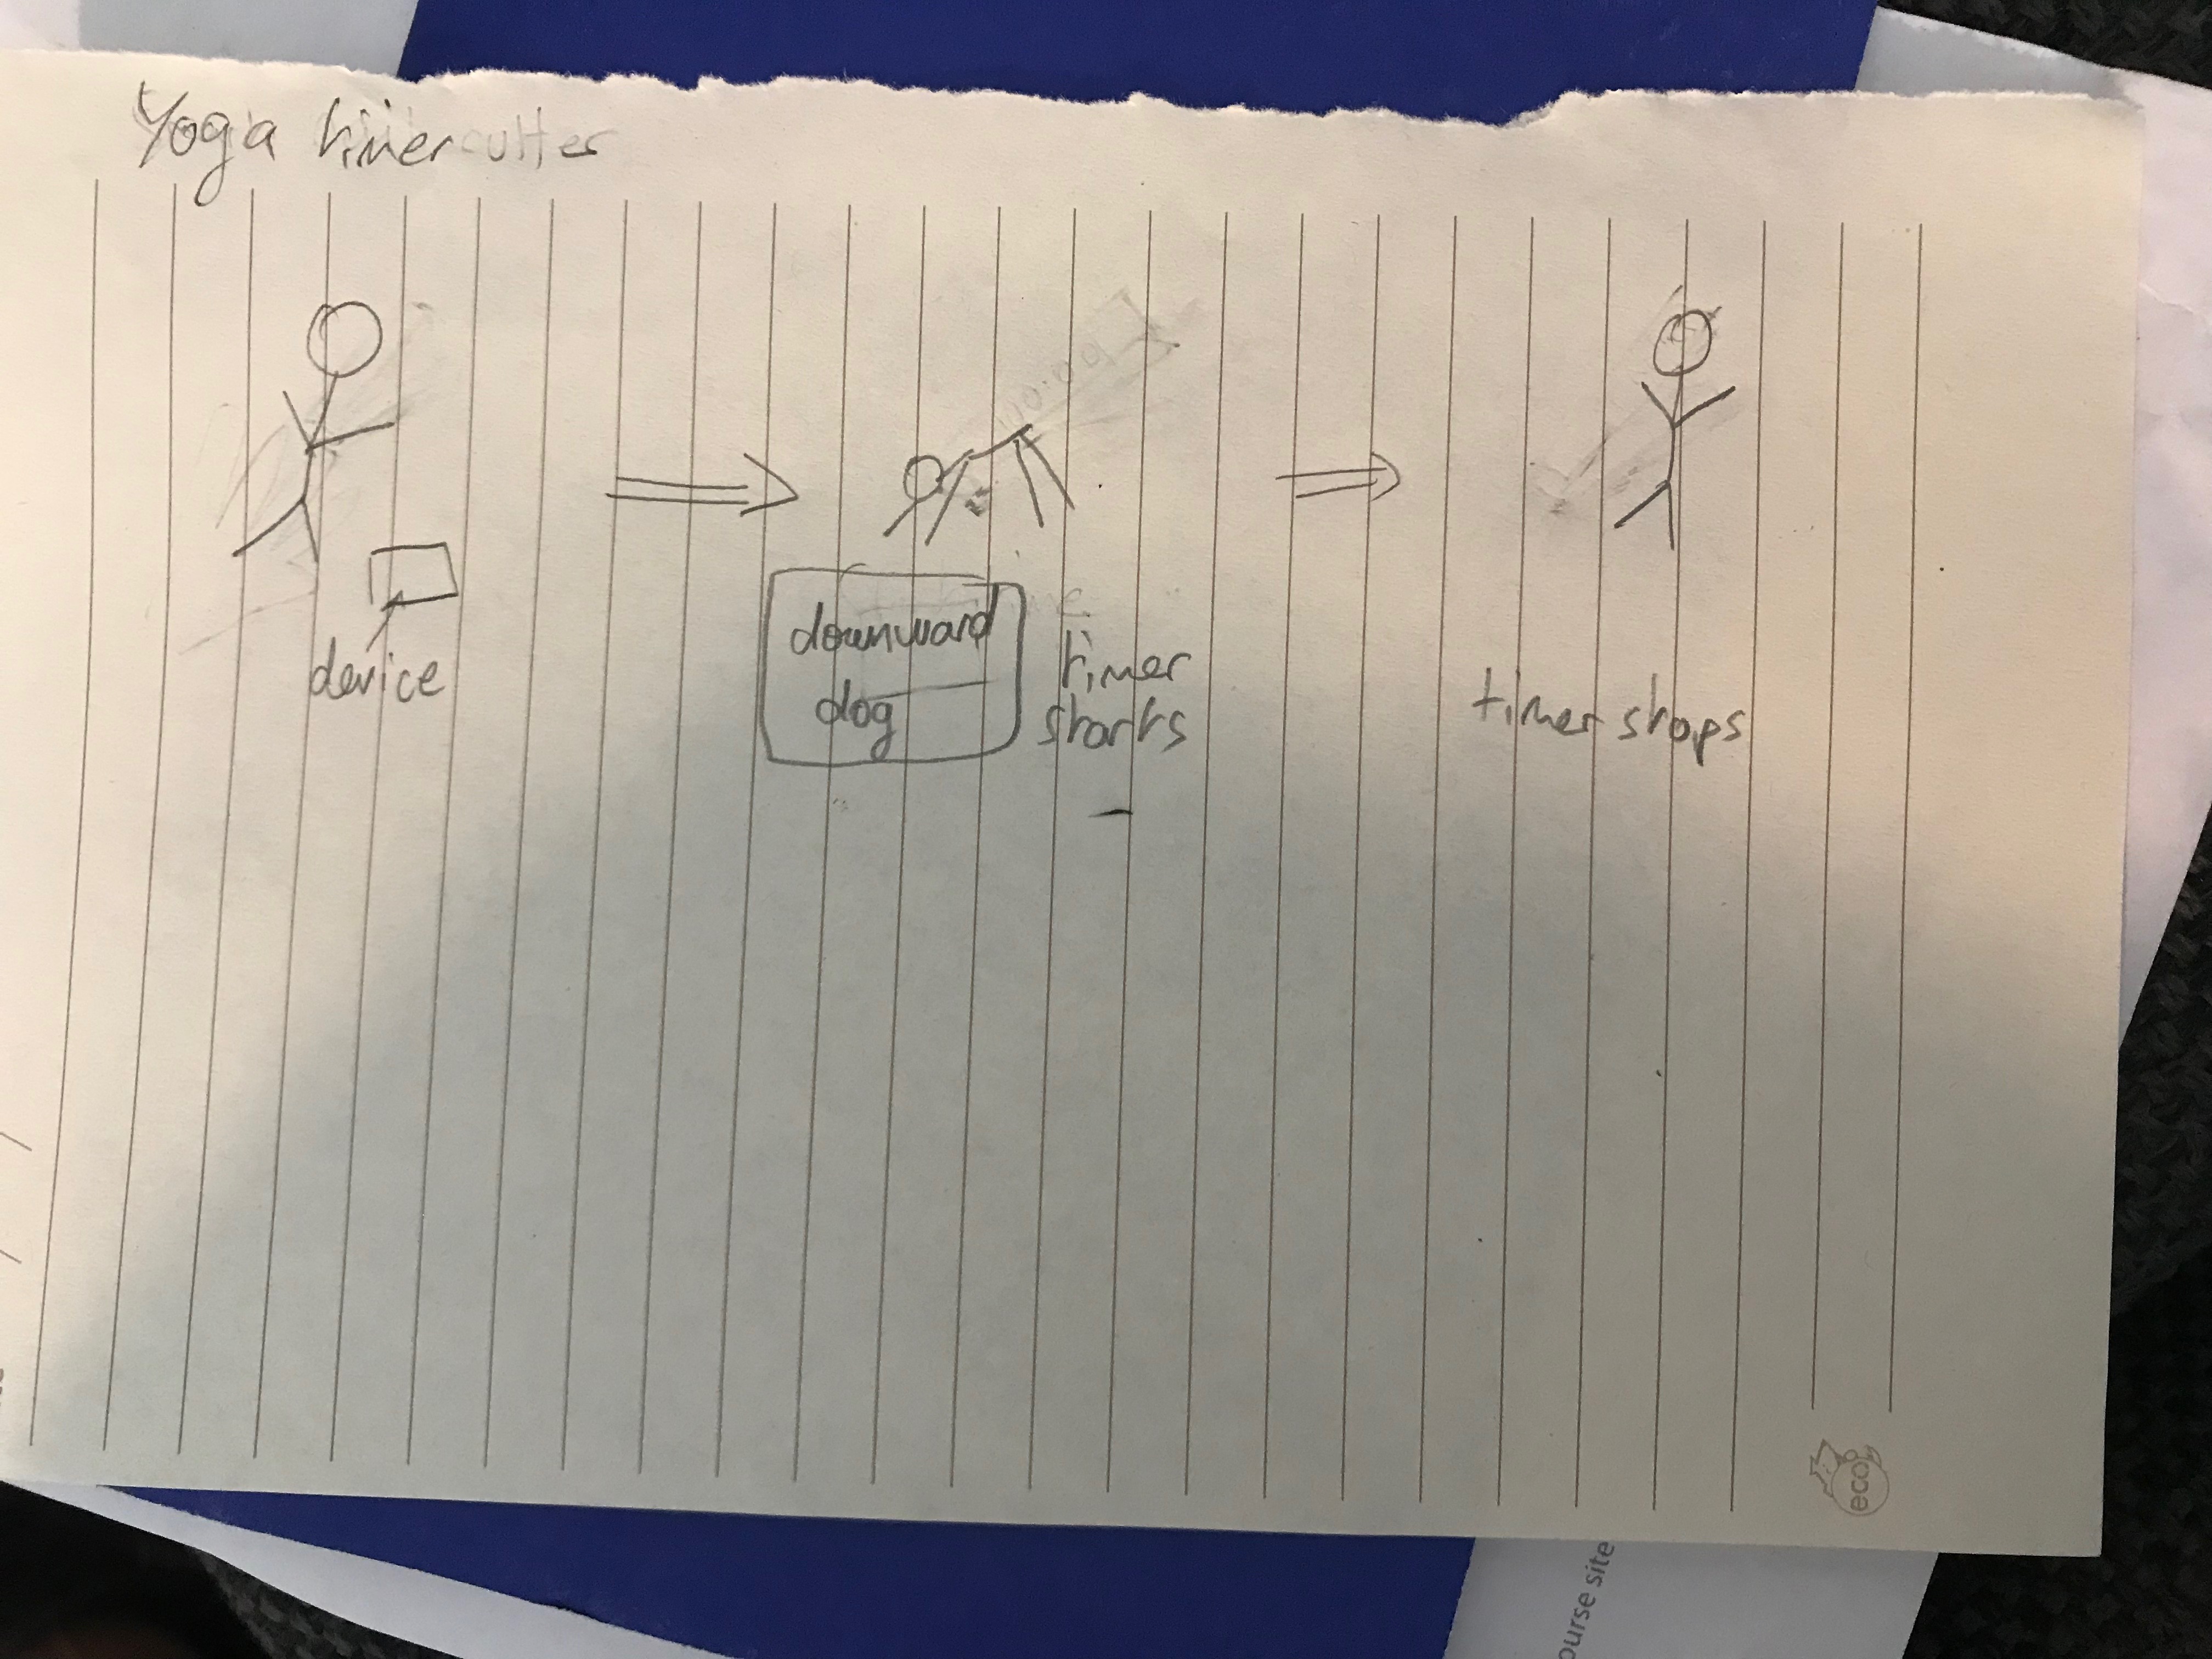 Yoga timer cutter
device
downward
dog
timer
starts
timer stops
eco
ourse site